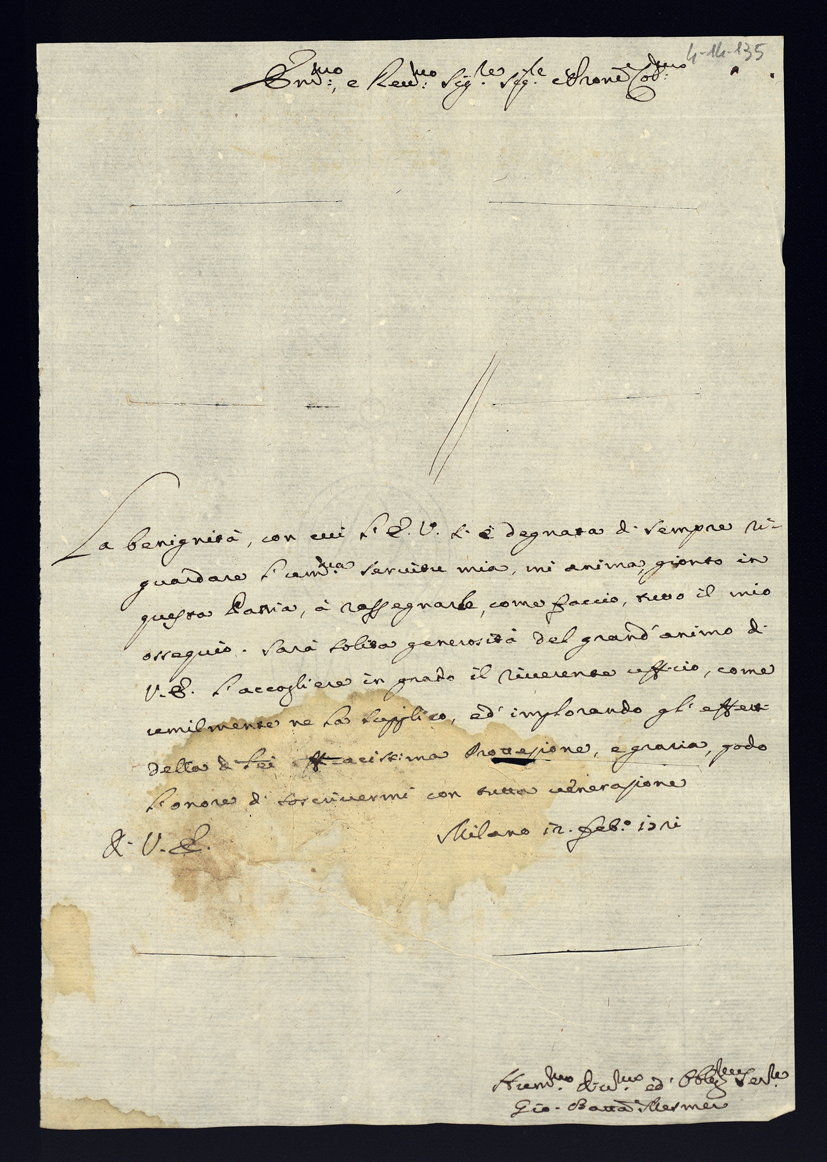 4-14-135
Em.mo, e Rev.mo Sig.re Sig.re e Prone Col.mo
La benignità, con cui l'E. V. s'è degnata di sempre ri-
guardare l'um.ma servitù mia, mi anima, gionto in
questa Patria, à rassegnarle, come faccio, tutto il mio
ossequio. Sarà solita generosità del grand'animo di
V. E. l'accogliere in grado il riverente ufficio, come
umilmente ne la supplico, ed' implorando gl' effetti
della di Lei efficacissima Protezione, e grazia, godo
l'onore di soscrivermi con tutta venerazione
Di V. E.
Milano 12. Feb.o 1721
Hum.mo Div.mo ed' Obbl.mo Ser.re
Gio. Batta